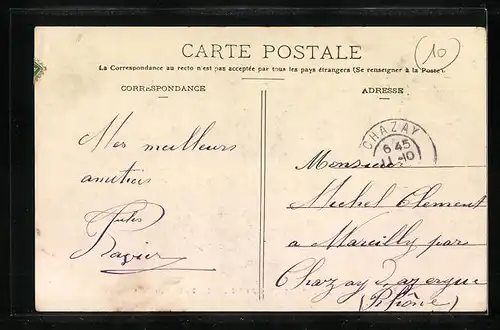 CARTE POSTALE
(10)
La Correspondance au recto n'est pas acceptée par tous les pays étrangers (Se renseigner à la Poste).
CORRESPONDANCE
ADRESSE
CHAZAY
6 45
11-10
Mes meilleurs
amitiés
Jules
Monsieur
Michel Clement
a Marcilly par
Chazay d'azergue
(Rhône)